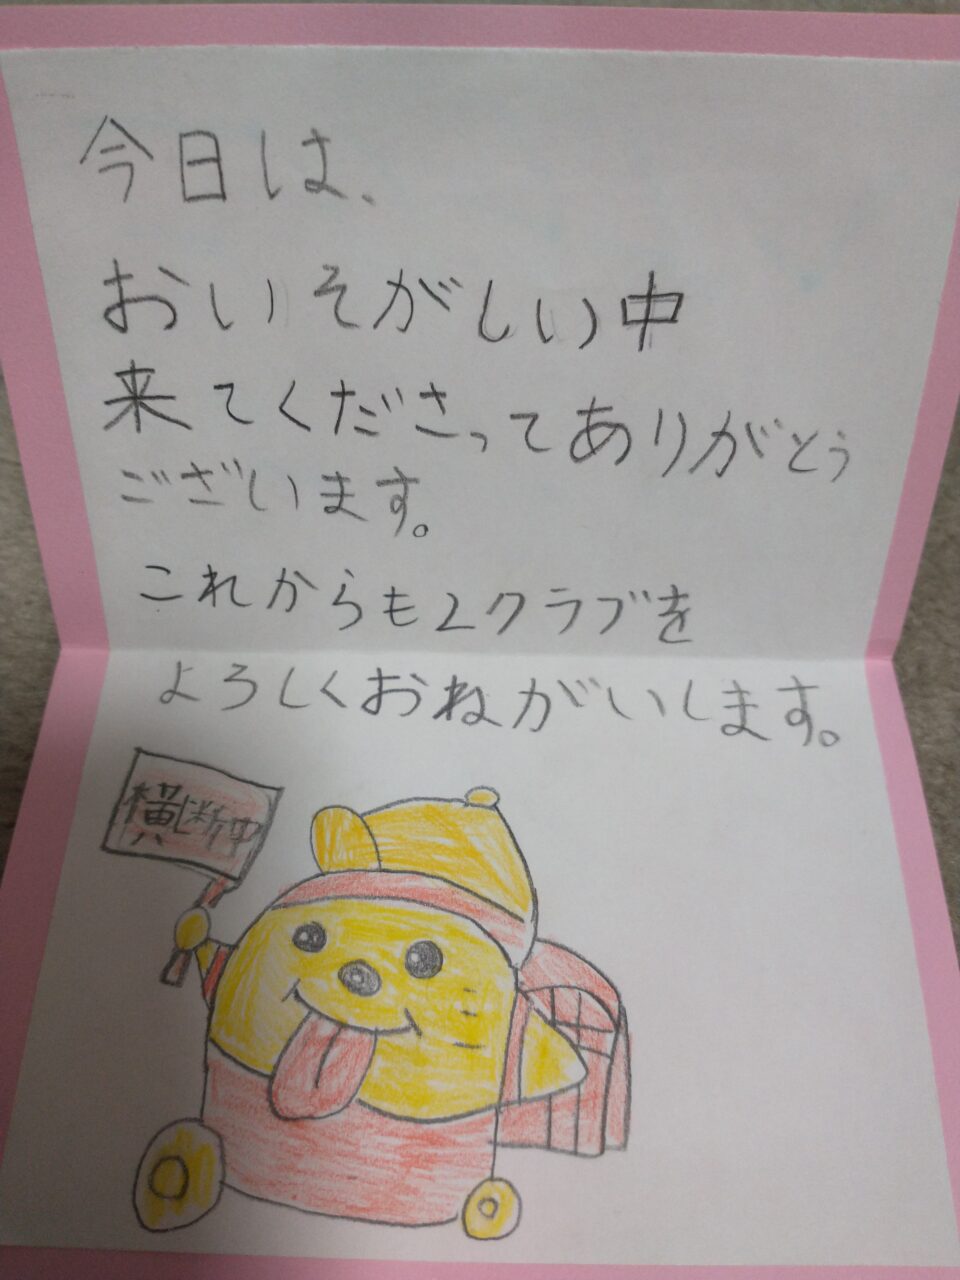 今日は、
おいそがしい中
来てくださってありがとう
ございます。
これからも2クラブを
よろしくおねがいします。
横断中